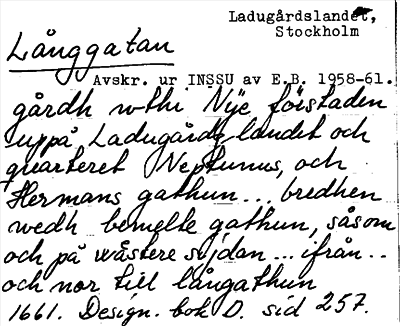 Ladugårdslandet,
Stockholm
Långgatan
Avskr. ur INSSU av E.B. 1958-61.
gårdh uthi Nÿe förstaden
uppå Ladugårdzlandet och
quarteret Neptunus, och
Hermans gathun... bredhen
wedh bemelte gathun, såsom
och på wästere sijdan... ifrån..
och nor till långathun
1661. Design. bok D. sid 257.